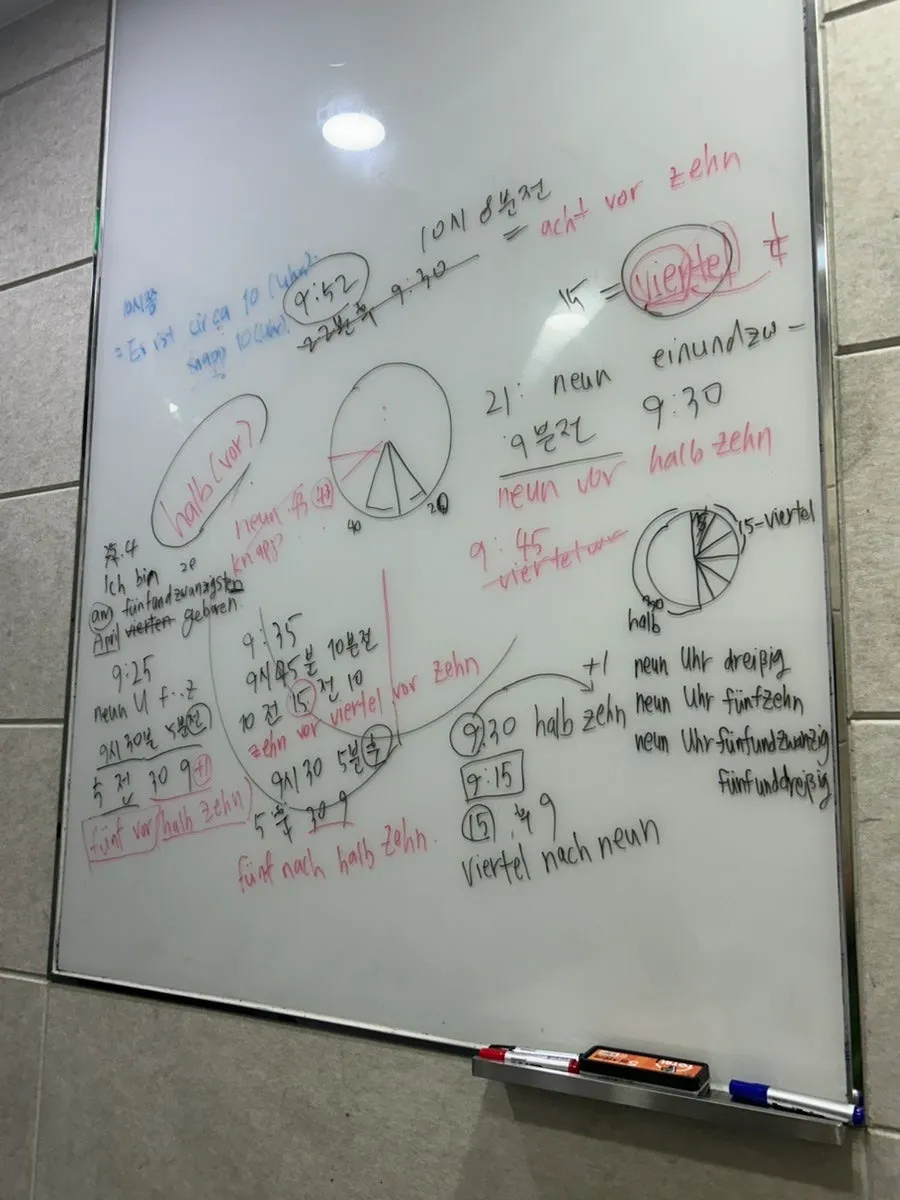 10시 8분전
= acht vor zehn
10시쯤
= Es ist circa 10 (Uhr).
knapp 10 (Uhr).
9:52
22분후 9:30
15 = viertel ¼
halb (vor)
neun 43
knapp
40
20
21: neun einundzw-
9분전 9:30
neun vor halb zehn
9:45
15-viertel
30
halb
4
Ich bin
am fünfundzwanzigsten
April vierten geboren.
9:25
neun U f...z
9시 30분 5분전
5 전 30 9+1
fünf vor halb zehn
9:35
9시 45분 10분전
10 전 15 전 10
zehn vor viertel vor zehn
9시 30 5분후
5 후 30 9
fünf nach halb zehn.
+1
9:30 halb zehn
9:15
15 후 9
Viertel nach neun
neun Uhr dreißig
neun Uhr fünfzehn
neun Uhr fünfundzwanzig
fünfunddreißig